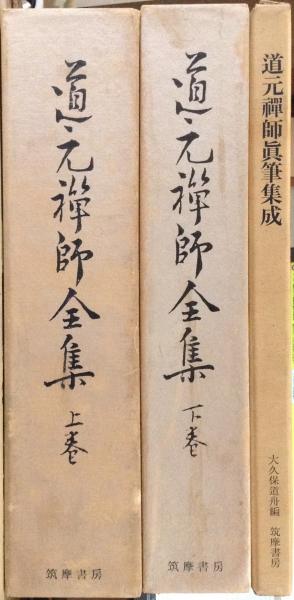 道元禅師全集
上巻
筑摩書房
道元禅師全集
下巻
筑摩書房
道元禪師眞筆集成
大久保道舟編 筑摩書房